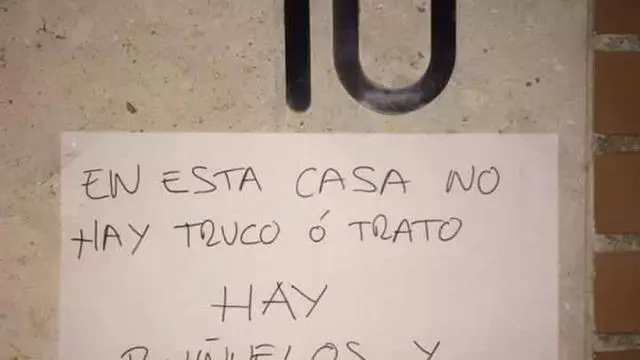 10
EN ESTA CASA NO
HAY TRUCO ó TRATO
HAY
BUÑUELOS Y